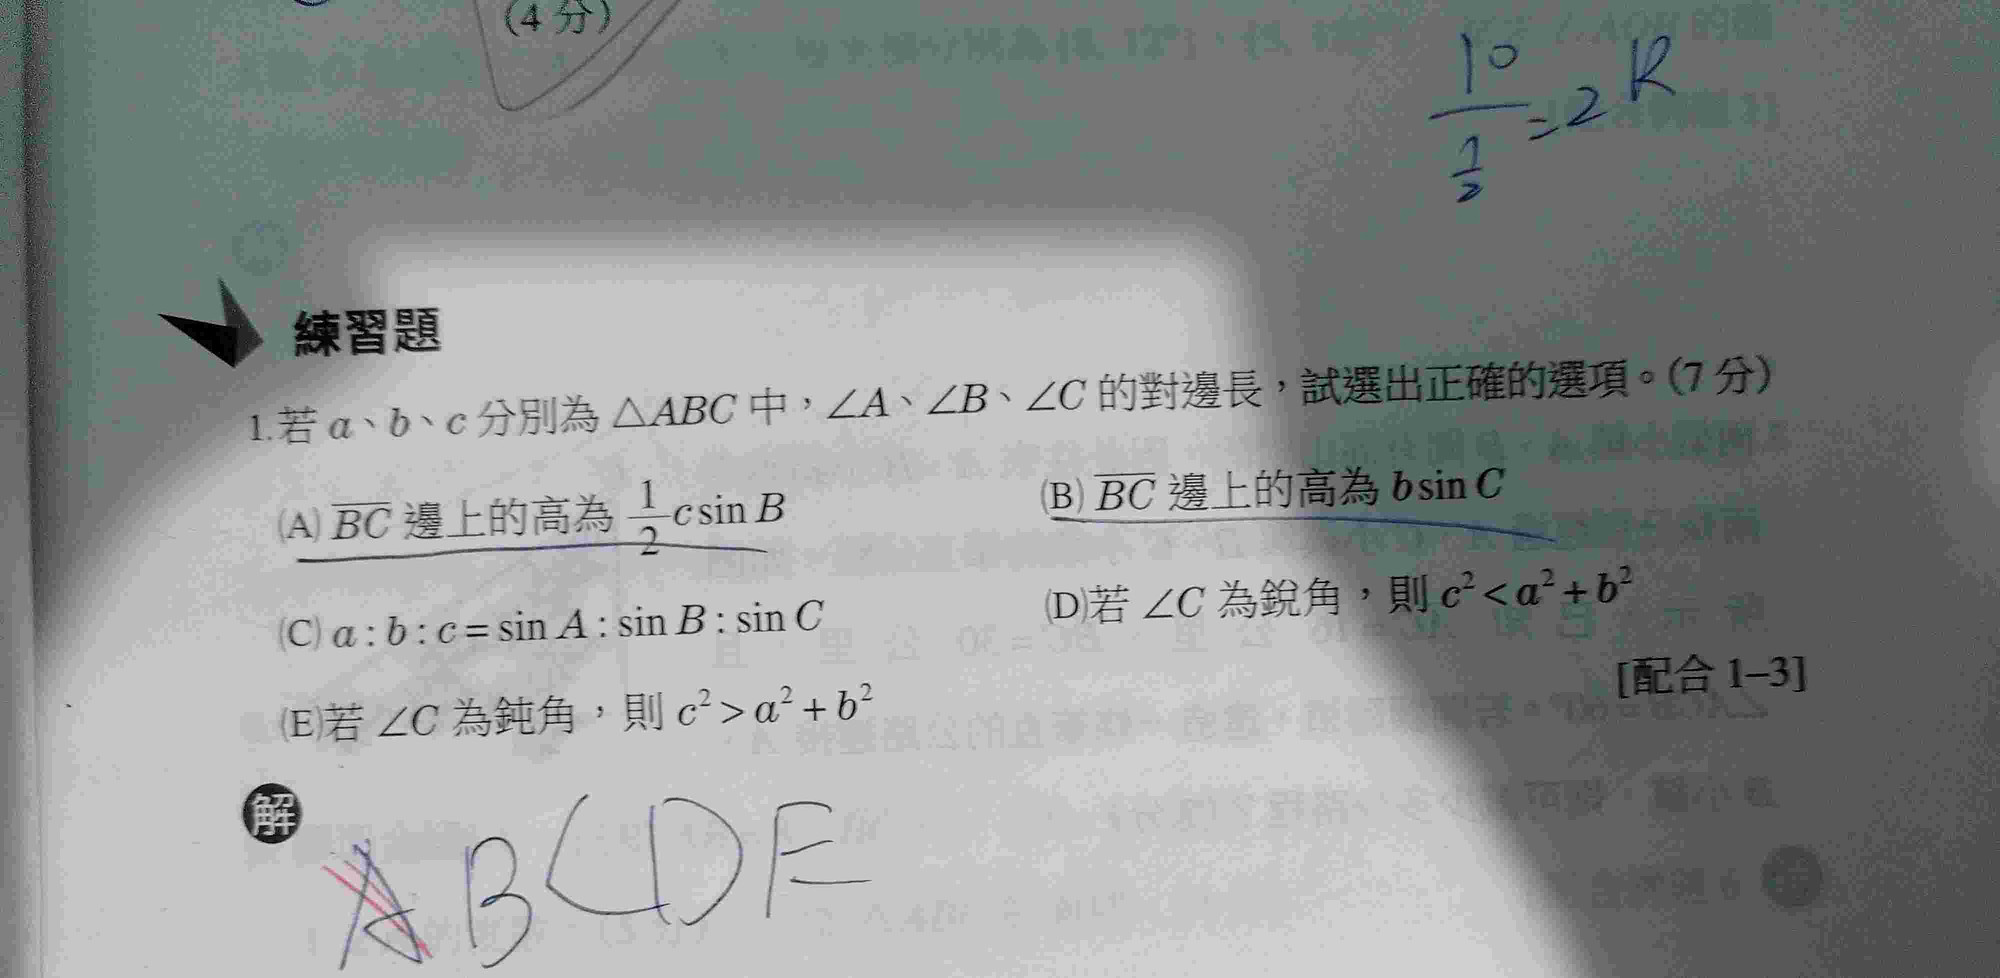 (4 分)
10/(1/2) = 2R
練習題
1. 若 a、b、c 分別為 △ABC 中，∠A、∠B、∠C 的對邊長，試選出正確的選項。(7 分)
(A) \overline{BC} 邊上的高為 \frac{1}{2} c sin B (B) \overline{BC} 邊上的高為 b sin C
(C) a : b : c = sin A : sin B : sin C (D)若 ∠C 為銳角，則 c² < a² + b²
(E)若 ∠C 為鈍角，則 c² > a² + b² [配合 1–3]
解
A B C D E